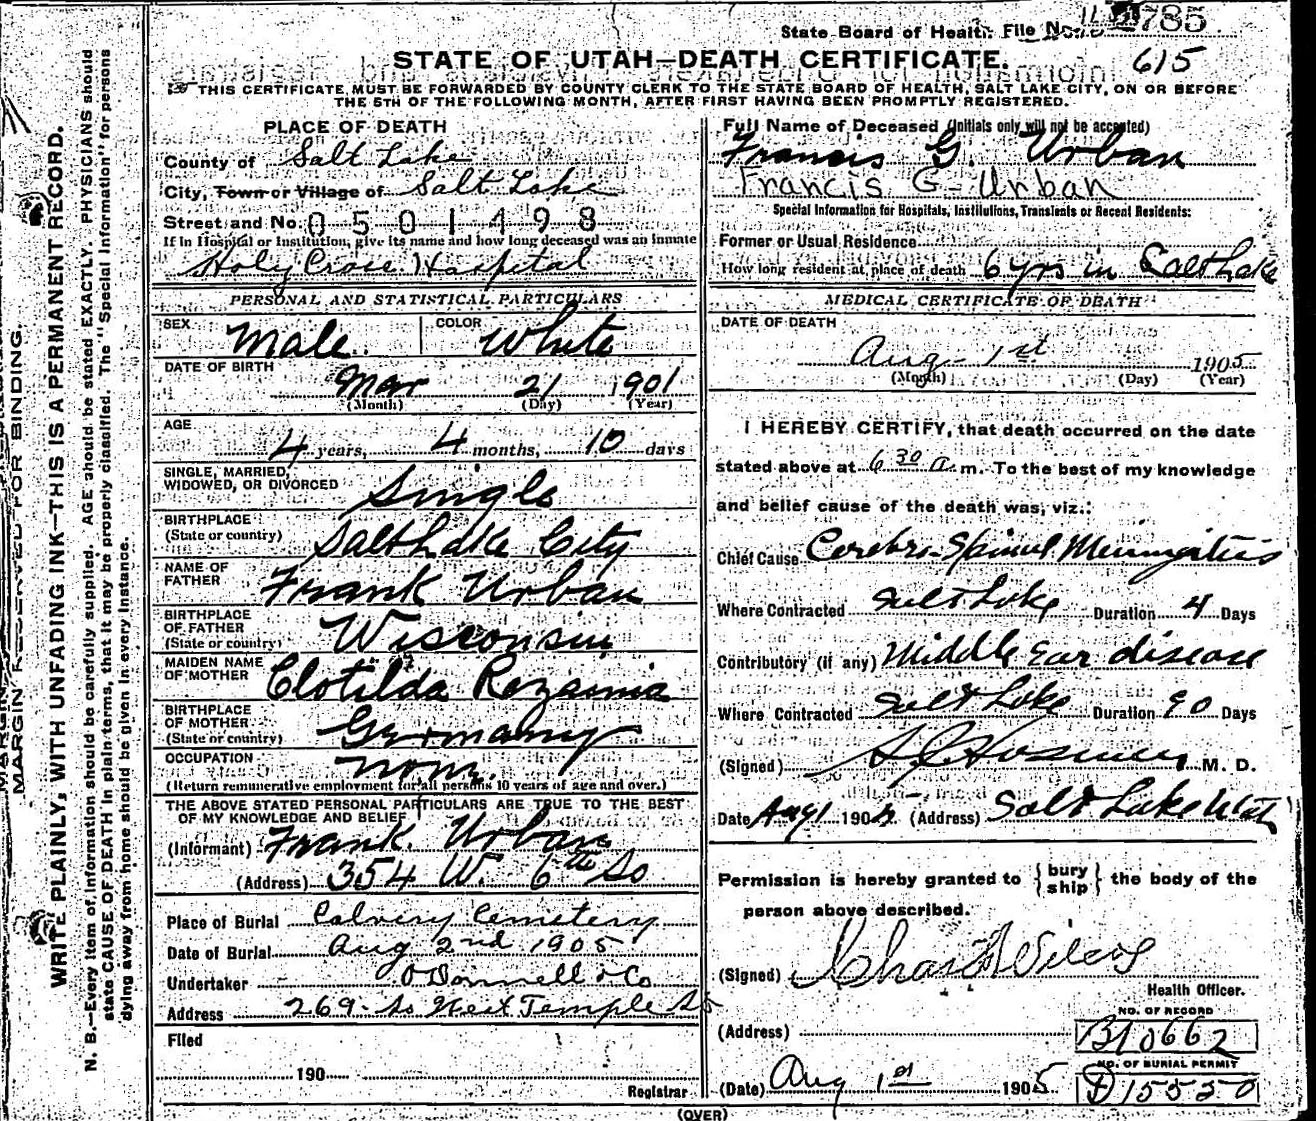 State Board of Health File No. 785
615
STATE OF UTAH—DEATH CERTIFICATE.
THIS CERTIFICATE MUST BE FORWARDED BY COUNTY CLERK TO THE STATE BOARD OF HEALTH, SALT LAKE CITY, ON OR BEFORE
THE 5TH OF THE FOLLOWING MONTH, AFTER FIRST HAVING BEEN PROMPTLY REGISTERED.
MARGIN RESERVED FOR BINDING
WRITE PLAINLY, WITH UNFADING INK—THIS IS A PERMANENT RECORD.
N. B.—Every item of information should be carefully supplied. AGE should be stated EXACTLY. PHYSICIANS should
state CAUSE OF DEATH in plain terms, that it may be properly classified. The "Special Information" for persons
dying away from home should be given in every instance.
PLACE OF DEATH
County of Salt Lake
City, Town or Village of Salt Lake
Street and No. 0501498
If in Hospital or Institution, give its name and how long deceased was an inmate
Holy Cross Hospital
PERSONAL AND STATISTICAL PARTICULARS
SEX Male COLOR White
DATE OF BIRTH
Mar 21 1901
(Month) (Day) (Year)
AGE
4 years, 4 months, 10 days
SINGLE, MARRIED,
WIDOWED, OR DIVORCED Single
BIRTHPLACE
(State or country) Salt Lake City
NAME OF
FATHER Frank Urban
BIRTHPLACE
OF FATHER
(State or country) Wisconsin
MAIDEN NAME
OF MOTHER Clotilda
BIRTHPLACE
OF MOTHER
(State or country) Germany
OCCUPATION none
(Return remunerative employment for all persons 10 years of age and over.)
THE ABOVE STATED PERSONAL PARTICULARS ARE TRUE TO THE BEST
OF MY KNOWLEDGE AND BELIEF
(Informant) Frank Urban
(Address) 354 W. 6th So
Place of Burial Calvery Cemetery
Date of Burial Aug 2nd 1905
Undertaker O'Donnell & Co
Address 269 So West Temple St
Filed
190
Registrar
Full Name of Deceased (Initials only will not be accepted)
Francis G. Urban
Francis G- Urban
Special Information for Hospitals, Institutions, Transients or Recent Residents:
Former or Usual Residence
How long resident at place of death 6 yrs in Salt Lake
MEDICAL CERTIFICATE OF DEATH
DATE OF DEATH
Aug 1st 1905
(Month) (Day) (Year)
I HEREBY CERTIFY, that death occurred on the date
stated above at 6 30 a. m. To the best of my knowledge
and belief cause of the death was, viz.:
Chief Cause Cerebro-Spinal Meningitis
Where Contracted Salt Lake Duration 4 Days
Contributory (if any) Middle Ear disease
Where Contracted Salt Lake Duration 90 Days
(Signed) M. D.
Date Aug 1 1905 (Address) Salt Lake Utah
Permission is hereby granted to { bury
ship } the body of the
person above described.
(Signed) Chas Wilcox
Health Officer.
NO. OF RECORD
(Address) B10662
NO. OF BURIAL PERMIT
(Date) Aug 1st 1905 D15520
(OVER)